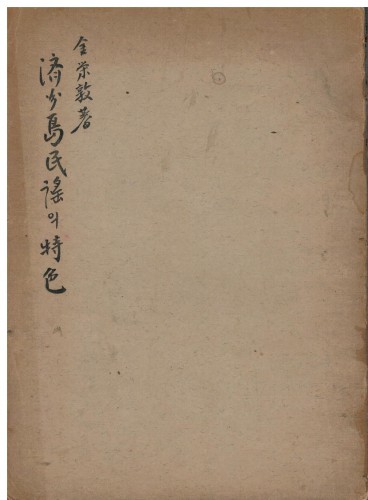 金栄敦著
済州島民謠의 特色